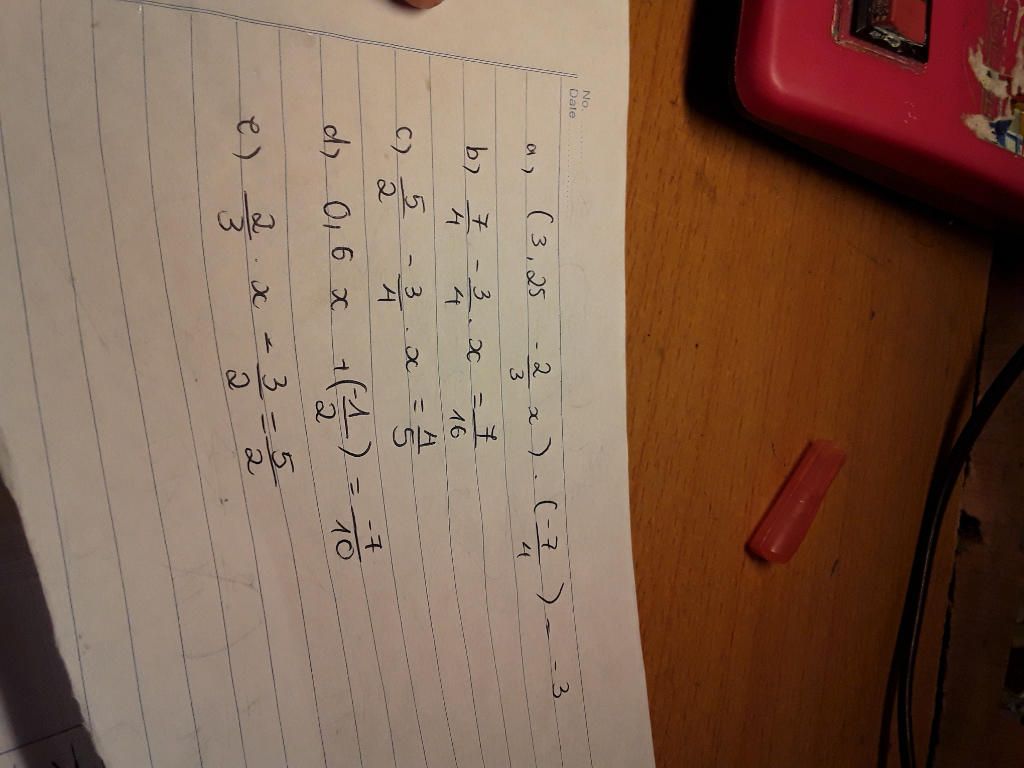 No.
Date
a) (3,25 -2/3 x) . (-7/4) = -3
b) 7/4 - 3/4 . x = 7/16
c) 5/2 - 3/4 . x = 4/5
d) 0,6 x + (-1/2) = -7/10
e) 2/3 . x - 3/2 = 5/2